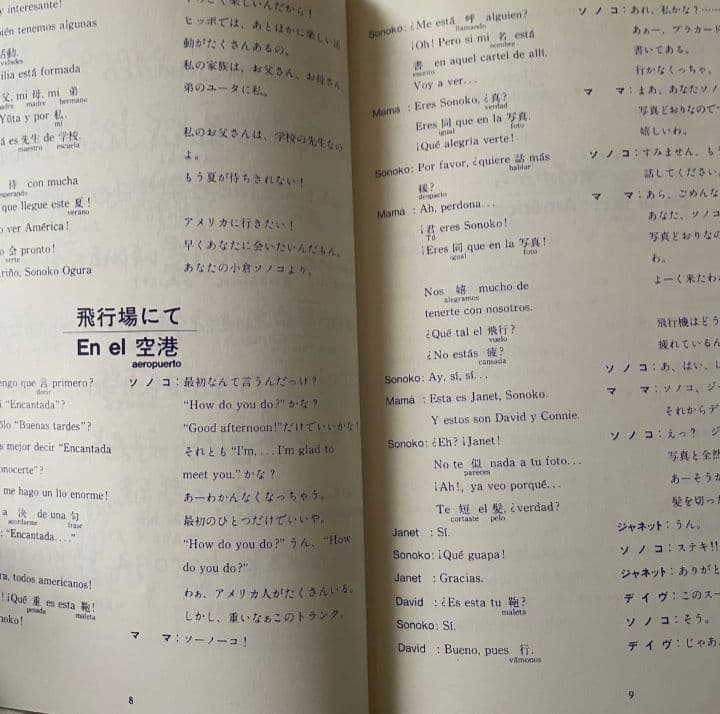 interesante!
tenemos algunas
活動.
vidades
ilia está formada
父, mi 母, mi 弟
padre madre hermano
Yūta y por 私.
mí
es 先生 de 学校.
maestro escuela
待 con mucha
esperando
que llegue este 夏!
verano
ver América!
会 pronto!
verte
Sonoko Ogura
ヒッポでは、あとほかに楽しい活
動がたくさんあるの。
私の家族は、お父さん、お母さん、
弟のユータに私。
私のお父さんは、学校の先生なの
よ。
もう夏が待ちきれない!
アメリカに行きたい!
早くあなたに会いたいんだもん。
あなたの小倉ソノコより。
飛行場にて
En el 空港
aeropuerto
que 言 primero?
decir
"Encantada"?
"Buenas tardes"?
mejor decir "Encantada
me hago un lío enorme!
a 決 de una 句
acordarme frase
"Encantada...."
todos americanos!
¡Qué 重 es esta 鞄!
pesada maleta
ソノコ:最初なんて言うんだっけ?
"How do you do?"かな?
"Good afternoon!"だけでいいかな!
それとも "I'm,...I'm glad to
meet you."かな?
あーわかんなくなっちゃう。
最初のひとつだけでいいや。
"How do you do?"うん、"How
do you do?"
わぁ、アメリカ人がたくさんいる。
しかし、重いなぁこのトランク。
ママ:ソーノーコ!
8
Sonoko: ¿Me está 呼 alguien?
llamando
¡Oh! Pero si mi 名 está
nombre
書 en aquel cartel de allí.
escrito
Voy a ver...
Mamá: Eres Sonoko, ¿真?
verdad
Eres 同 que en la 写真.
igual foto
¡Qué alegría verte!
Sonoko: Por favor, ¿quiere 話 más
hablar
緩?
despacio
Mamá: Ah, perdona...
¡君 eres Sonoko!
Tú
¡Eres 同 que en la 写真!
igual foto
Nos 嬉 mucho de
alegramos
tenerte con nosotros.
¿Qué tal el 飛行?
vuelo
¿No estás 疲?
cansada
Sonoko: Ay, sí, sí...
Mamá: Esta es Janet, Sonoko.
Y estos son David y Connie.
Sonoko: ¿Eh? ¡Janet!
No te 似 nada a tu foto...
pareces
¡Ah!, ya veo porqué...
Te 短 el 髪, ¿verdad?
cortaste pelo
Janet: Sí.
Sonoko: ¡Qué guapa!
Janet: Gracias.
David: ¿Es esta tu 鞄?
maleta
Sonoko: Sí.
David: Bueno, pues 行.
vámonos
ソノコ:あれ、私かな?
あぁー、プラカード
書いてある。
行かなくっちゃ。
ママ:まあ、あなたソノ
写真どおりなので
嬉しいわ。
ソノコ:すみません、もう
話してください
ママ:あら、ごめんな
あなた、ソノコ
写真とおりな
わ。
よーく来たわ
飛行機はどう
疲れているん
ソノコ:あ、はい、
ママ:ソノコ、ジ
それからデ
ソノコ:えっ? ジ
写真と全然
あーそうか
髪を切っ
ジャネット:うん。
ソノコ:ステキ!!
ジャネット:ありがと
デイヴ:このスー
ソノコ:そう。
デイヴ:じゃあ、
9